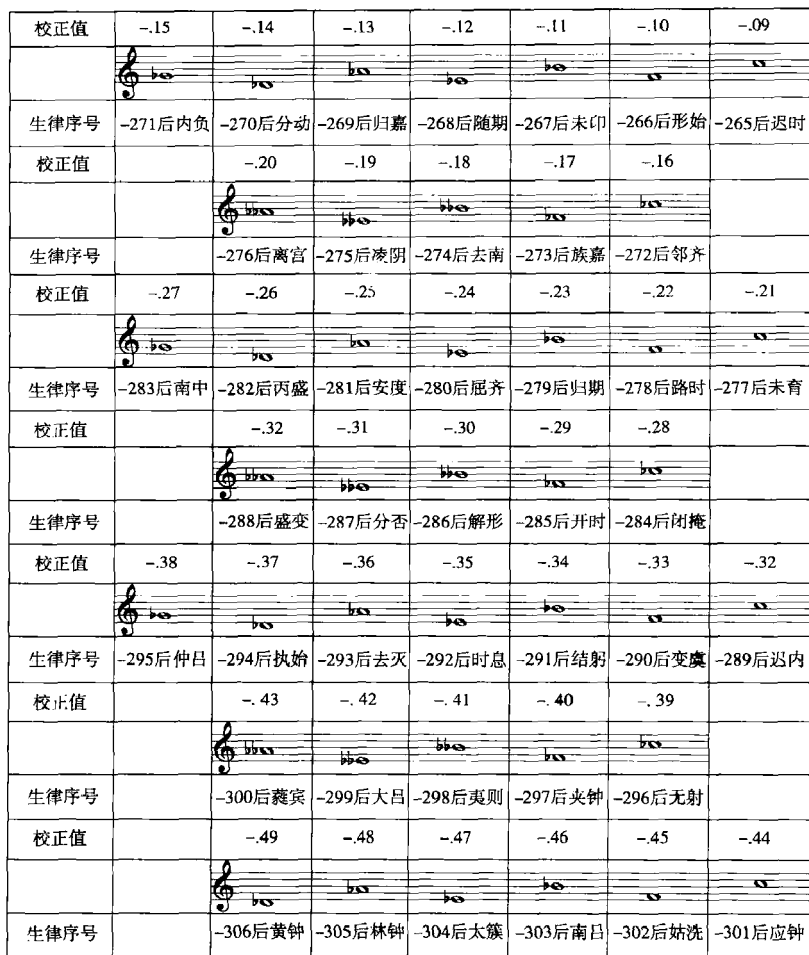 校正值 -.15 -.14 -.13 -.12 -.11 -.10 -.09
生律序号 -271后内负 -270后分动 -269后归嘉 -268后随期 -267后未卬 -266后形始 -265后迟时
校正值 -.20 -.19 -.18 -.17 -.16
生律序号 -276后离宫 -275后凌阴 -274后去南 -273后族嘉 -272后邻齐
校正值 -.27 -.26 -.25 -.24 -.23 -.22 -.21
生律序号 -283后南中 -282后丙盛 -281后安度 -280后屈齐 -279后归期 -278后路时 -277后未育
校正值 -.32 -.31 -.30 -.29 -.28
生律序号 -288后盛变 -287后分否 -286后解形 -285后开时 -284后闭掩
校正值 -.38 -.37 -.36 -.35 -.34 -.33 -.32
生律序号 -295后仲吕 -294后执始 -293后去灭 -292后时息 -291后结躬 -290后变虞 -289后迟内
校正值 -.43 -.42 -.41 -.40 -.39
生律序号 -300后蕤宾 -299后大吕 -298后夷则 -297后夹钟 -296后无射
校正值 -.49 -.48 -.47 -.46 -.45 -.44
生律序号 -306后黄钟 -305后林钟 -304后太簇 -303后南吕 -302后姑洗 -301后应钟